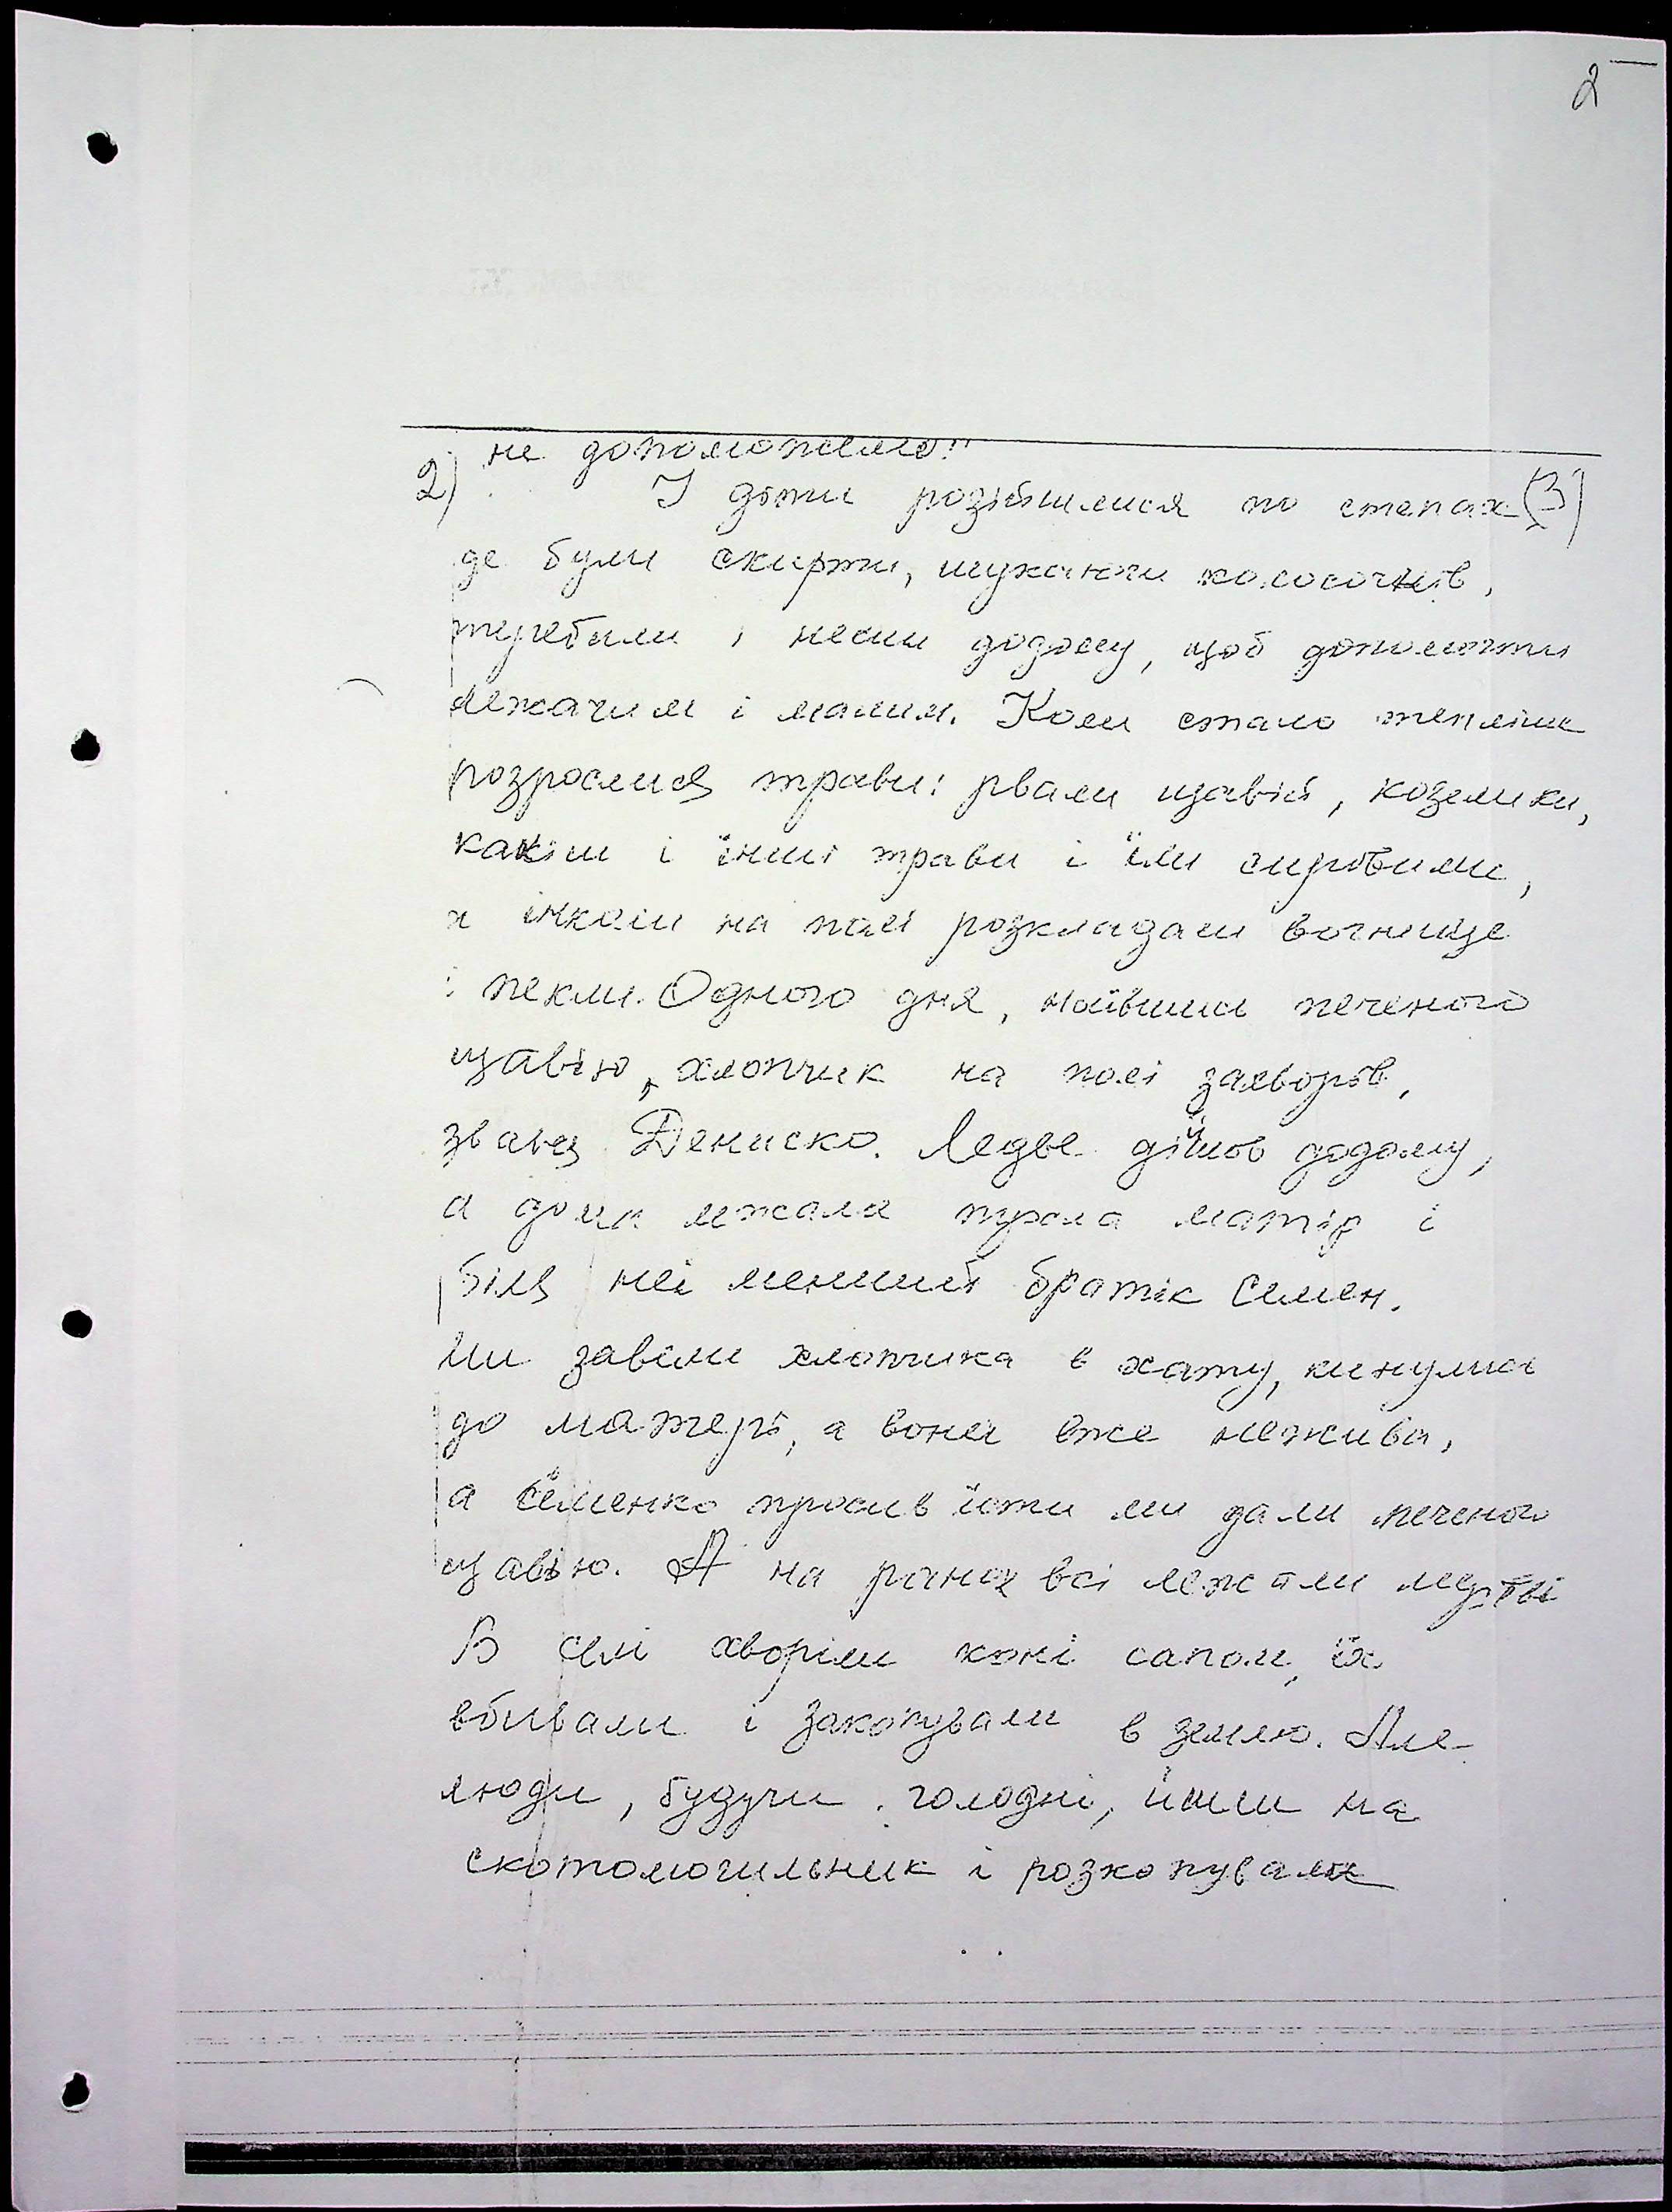 2
не допоможемо!"
2) І діти розійшлися по степах (3)
де були скирти, шукаючи колосочків,
теребили і несли додому, щоб допомогти
лежачим і малим. Коли стало тепліше
розрослися трави: рвали щавій, козелики,
какіш і інші трави і їли сировими,
а інколи на полі розкладали вогнище
і пекли. Одного дня, наївшись печеного
щавію, хлопчик на полі захворів,
звавсь Дениско. Ледве дійшов додому,
а дома лежала хвора матір і
біля неї менший братік Семен.
Ми завели хлопчика в хату, кинулися
до матері, а вона вже нежива,
а Семенко просив їсти ми дали печеного
щавію. А на ранок всі лежали мертві
В селі хворіли коні сапом, їх
вбивали і закопували в землю. Але
люди, будучи голодні, йшли на
скотомогильник і розкопували